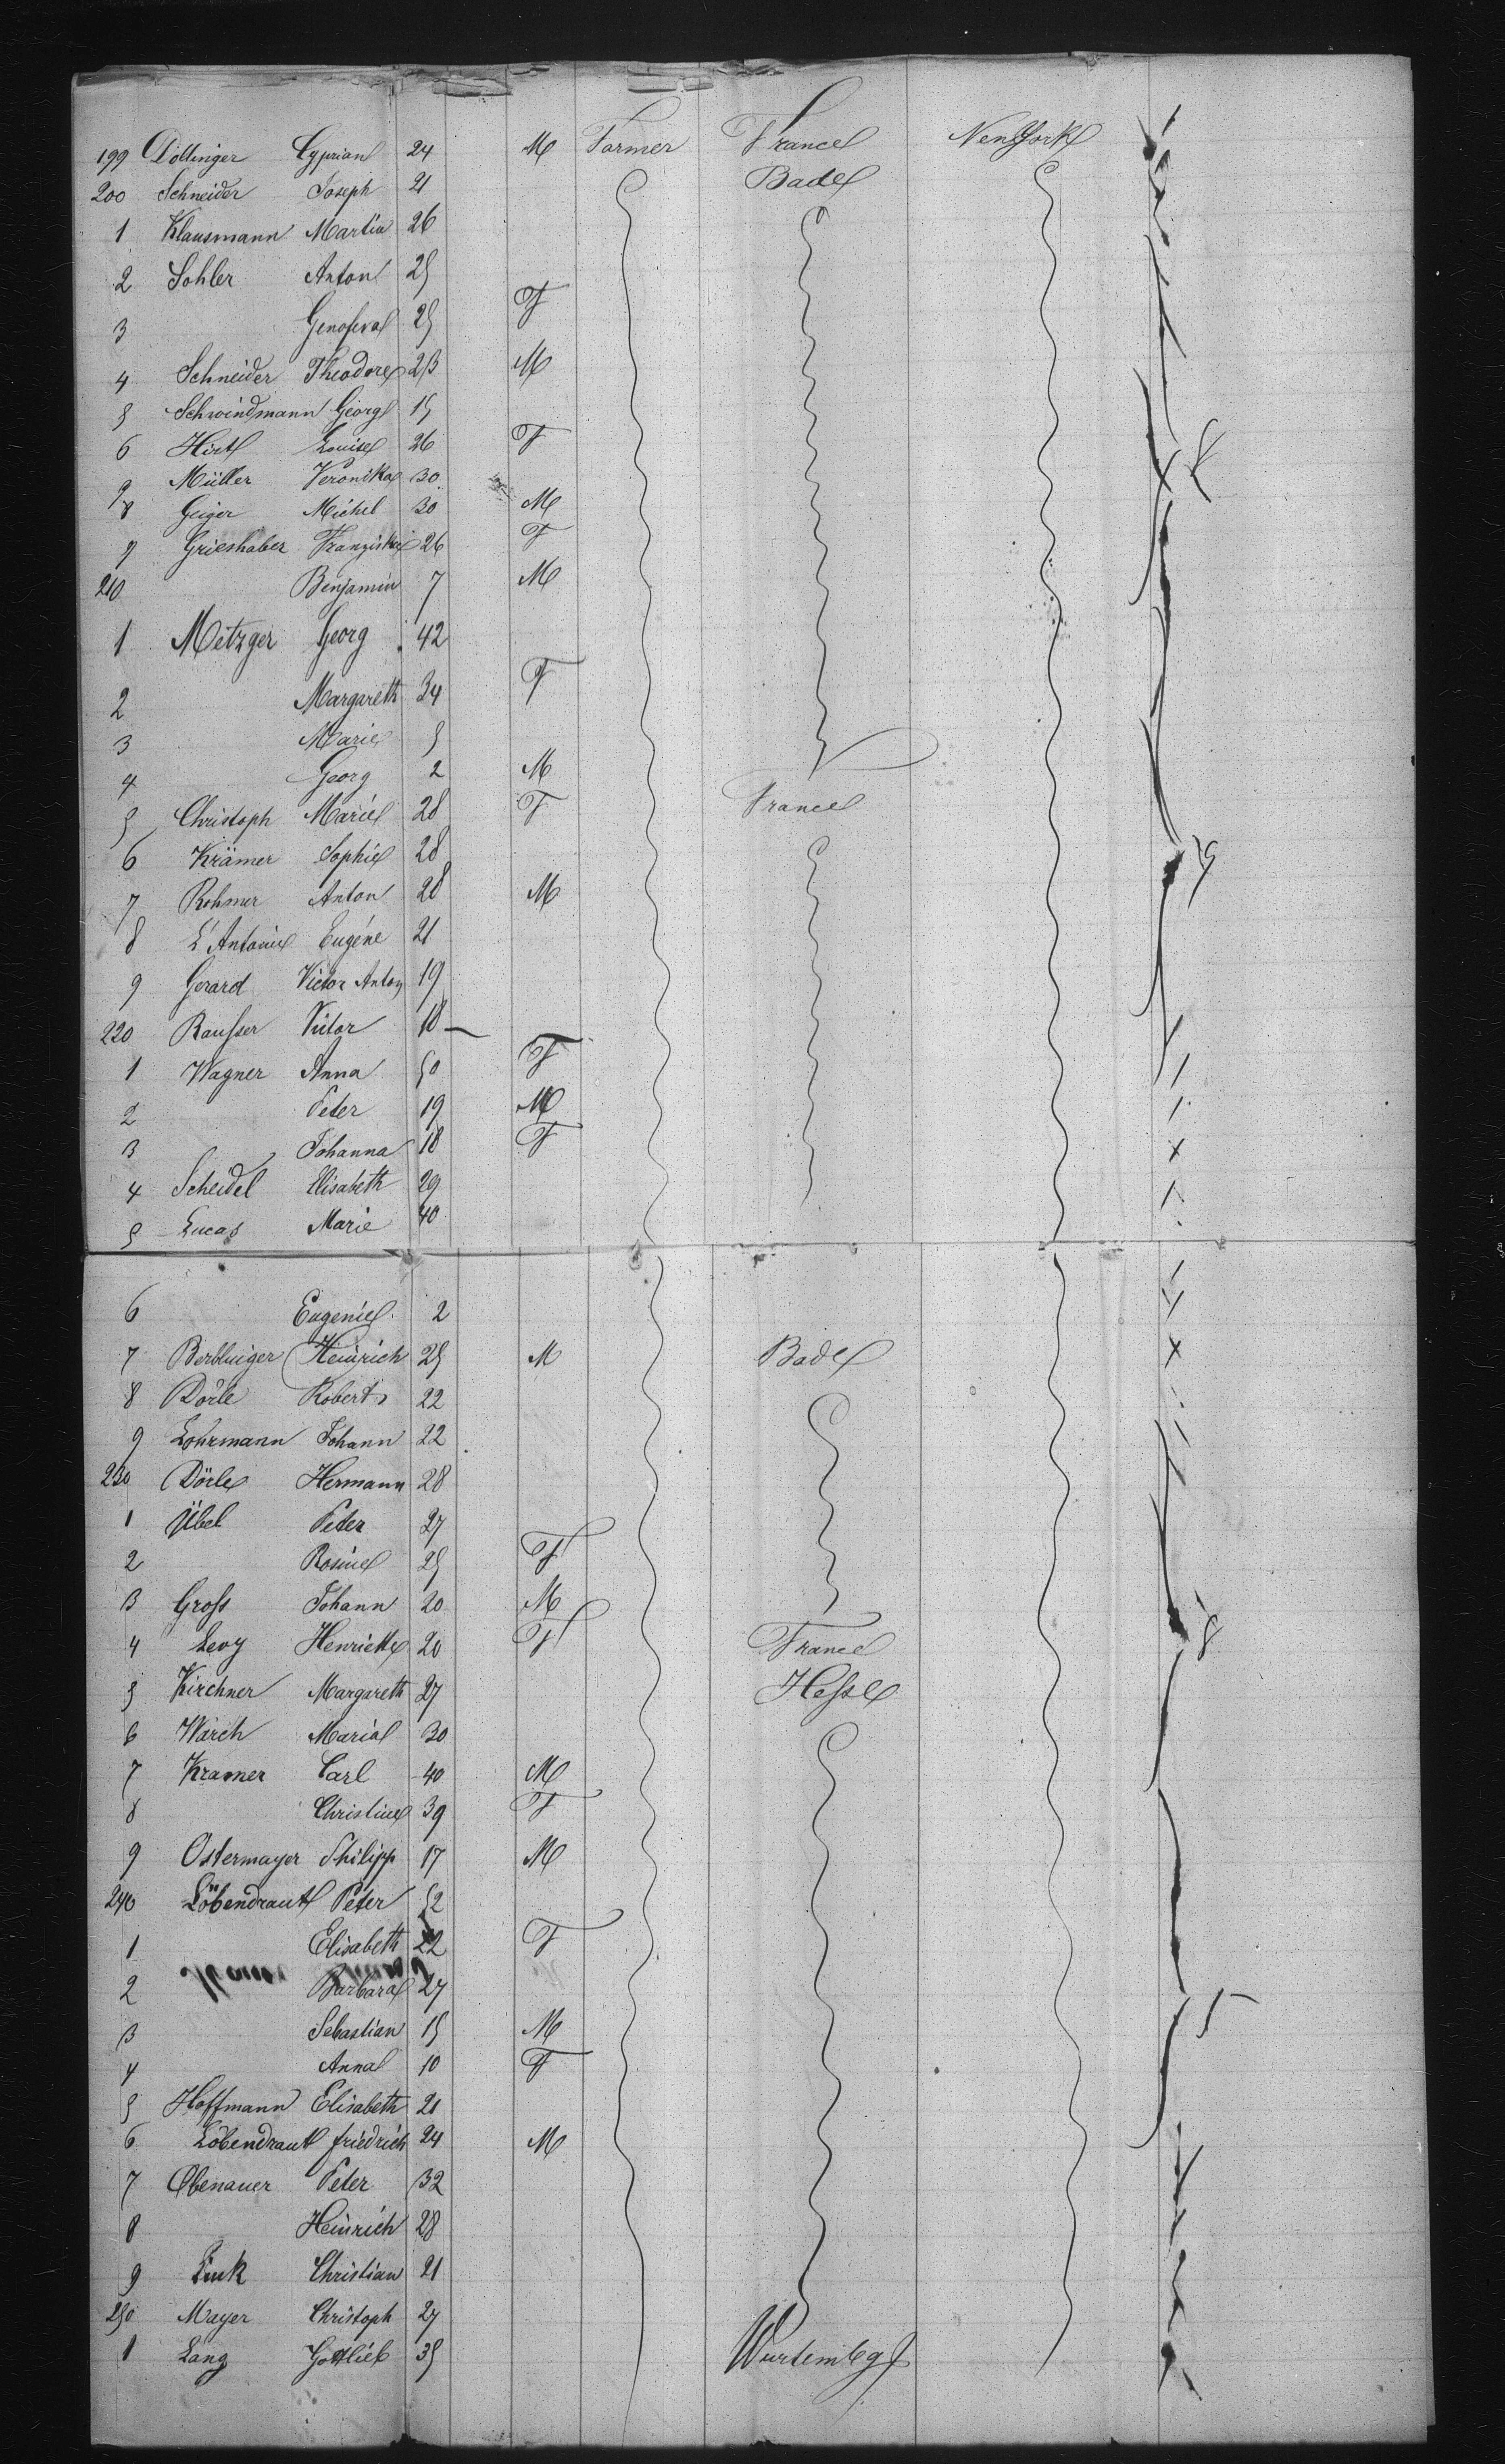 199 Dollinger Cyprian 24 M Farmer France New York
200 Schneider Joseph 21 Bade
1 Klausmann Martin 26
2 Sohler Anton 25
3 Genofeva 25 F
4 Schneider Theodore 23 M
5 Schwindmann Georg 15
6 Hirt Louise 26 F
7 Müller Veronika 30
8 Geiger Michel 30 M
9 Grieshaber Franziska 26 F
210 Benjamin 7 M
1 Metzger Georg 42
2 Margareth 34 F
3 Marie 5
4 Georg 2 M
5 Christoph Marie 28 F France
6 Krämer Sophie 28
7 Rohmer Anton 28 M
8 L'Antoine Eugéne 21
9 Gerard Victor Anton 19
220 Rausser Victor 18
1 Wagner Anna 50 F
2 Peter 19 M
3 Johanna 18 F
4 Scheidel Elisabeth 29
5 Lucas Marie 40
6 Eugenie 2
7 Berblinger Heinrich 25 M Bade
8 Dörle Robert 22
9 Lohrmann Johann 22
230 Dörle Hermann 28
1 Übel Peter 27
2 Rosine 25 F
3 Gross Johann 20 M
4 Levy Henriette 20 F France
5 Kirchner Margareth 27 Hesse
6 Warch Maria 30
7 Kramer Carl 40 M
8 Christine 39 F
9 Ostermayer Philipp 17 M
240 Löbendraut Peter 52
1 Elisabeth 22 F
2 Barbara 27
3 Sebastian 15 M
4 Anna 10 F
5 Hoffmann Elisabeth 21
6 Löbendraut friedrich 24 M
7 Obenauer Peter 32
8 Heinrich 28
9 Link Christian 21
250 Mayer Christoph 27
1 Lang Gottlieb 35 Wurtembg